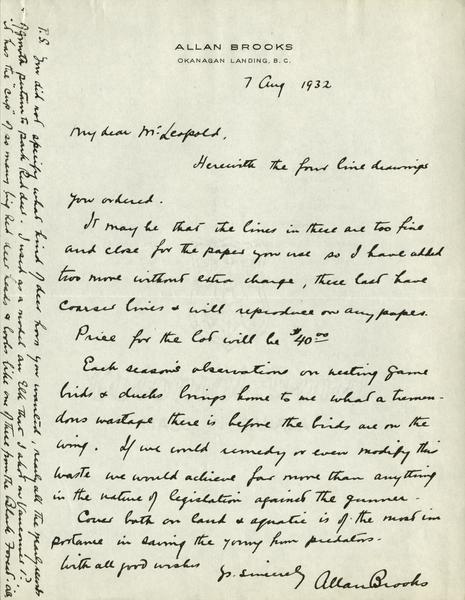 ALLAN BROOKS
OKANAGAN LANDING, B.C.
7 Aug 1932
My dear Mr Leopold,
Herewith the four line drawings
you ordered.
It may be that the lines in these are too fine
and close for the paper you use so I have added
two more without extra charge, these last have
coarser lines & will reproduce on any paper.
Price for the lot will be $40.00
Each season's observations on nesting game
birds & ducks brings home to me what a tremen-
dous wastage there is before the birds are on the
wing. If we could remedy or even modify this
waste we would achieve far more than anything
in the nature of legislation against the gunner.
Cover both on land & aquatic is of the most im
portance in saving the young from predators.
With all good wishes
Yrs. sincerely
Allan Brooks
P.S. You did not specify what kind of deer horns you wanted, nearly all the
pertain to park Red deer. I used as a model an Elk that I shot on Vancouver I.
it has the "cup" of so many big Red deer heads & looks like one of these from the Black Forest.